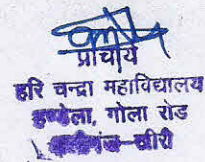 प्राचार्य
हरि चन्द्रा महाविद्यालय
गोला रोड
खीरी